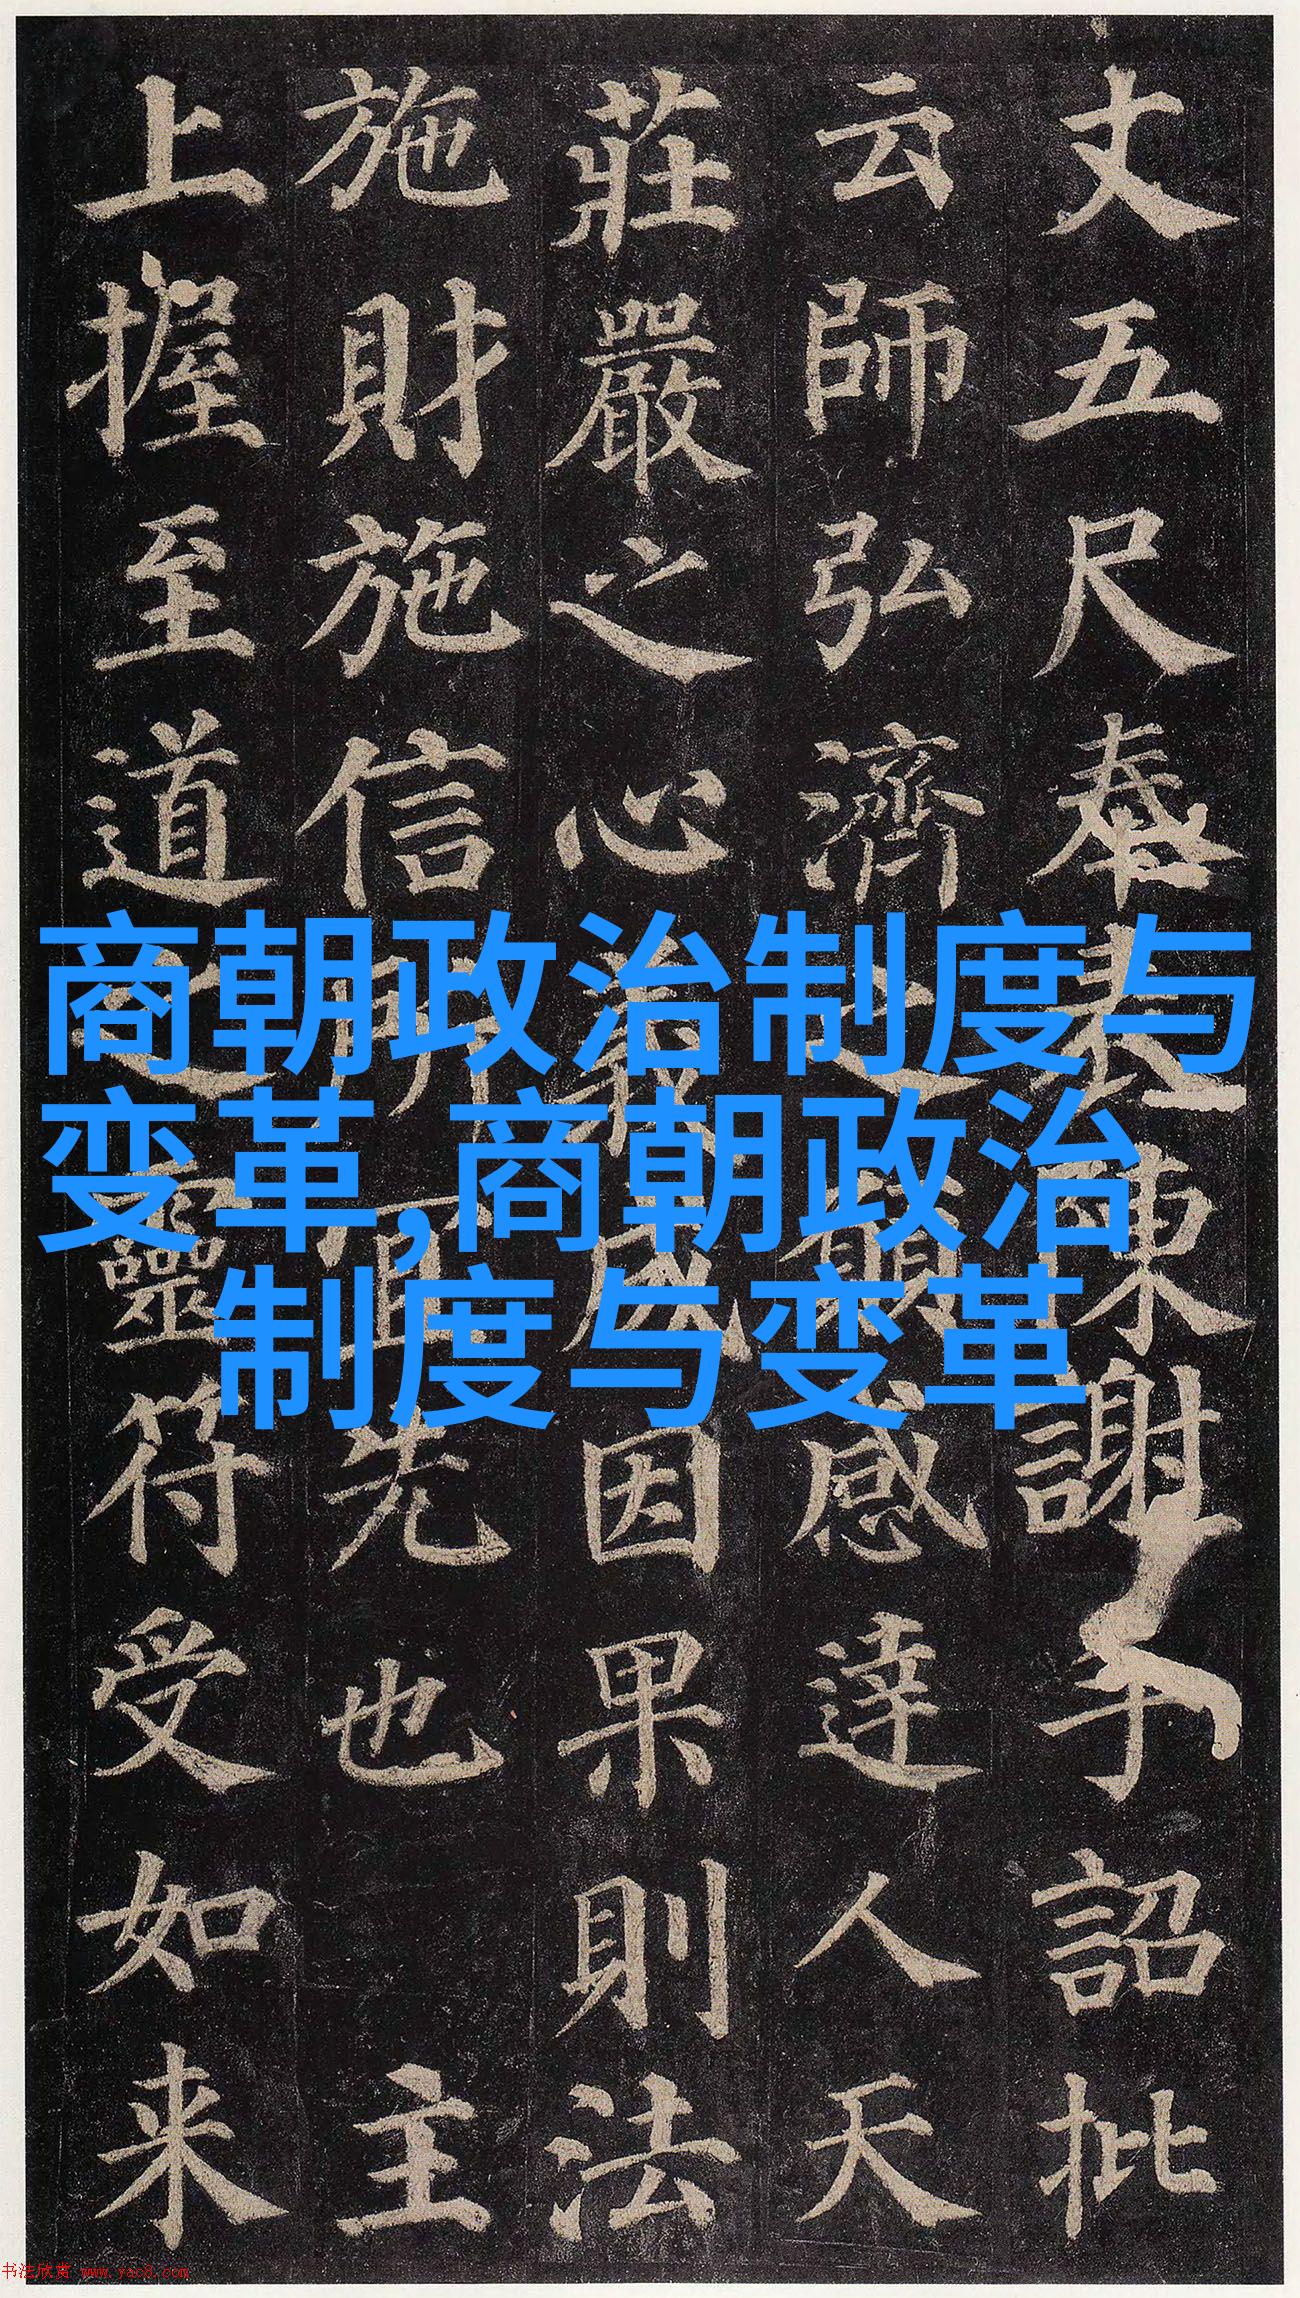 丈五尺奉表陳謝手詔批
云師弘濟之願感達人天
莊嚴之心義成因果則法
施財施信所宜先也主
上握至道之靈符受如来
商朝政治制度与
变革,商朝政治
制度与变革
书法欣赏 www.yac8.com